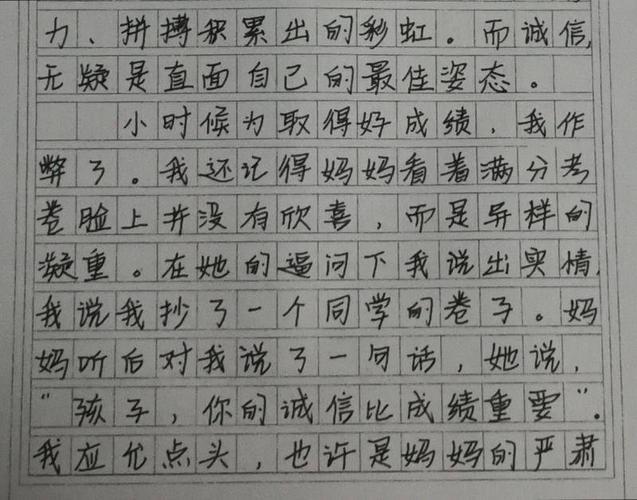 力、拼搏积累出的彩虹。而诚信,
无疑是直面自己的最佳姿态。
小时候为取得好成绩,我作
弊了。我还记得妈妈看着满分考
卷脸上并没有欣喜,而是异样的
凝重。在她的逼问下我说出实情,
我说我抄了一个同学的卷子。妈
妈听后对我说了一句话,她说,
“孩子,你的诚信比成绩重要”。
我应允点头,也许是妈妈的严肃